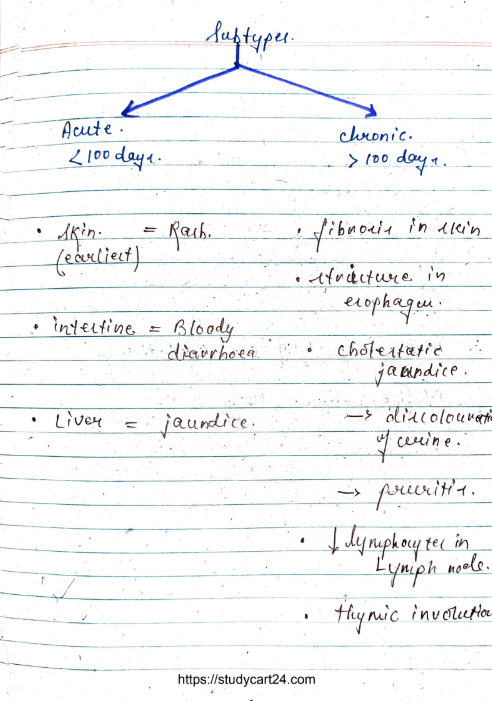 Subtypes.
Acute.
< 100 days.
• skin. = Rash.
(earliest)
• intestine = Bloody
diarrhoea
• Liver = jaundice.
chronic.
> 100 days.
• fibrosis in skin
• structure in
esophagus.
• cholestatic
jaundice.
→ discolouratio
of urine.
→ pruritis.
• ↓ lymphocytes in
Lymph node.
• thymic involution
https://studycart24.com